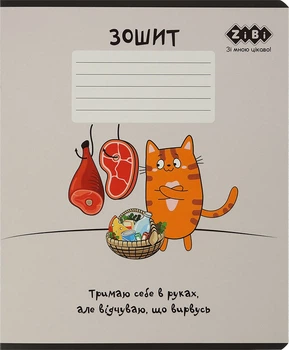 ZiBi
Зі мною цікаво!
ЗОШИТ
Тримаю себе в руках,
але відчуваю, що вирвусь